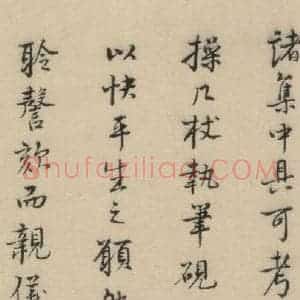 諸集中具可考
操几杖執筆硯
以快平生之願
聆謦欬而親儀
shufaziliao.com